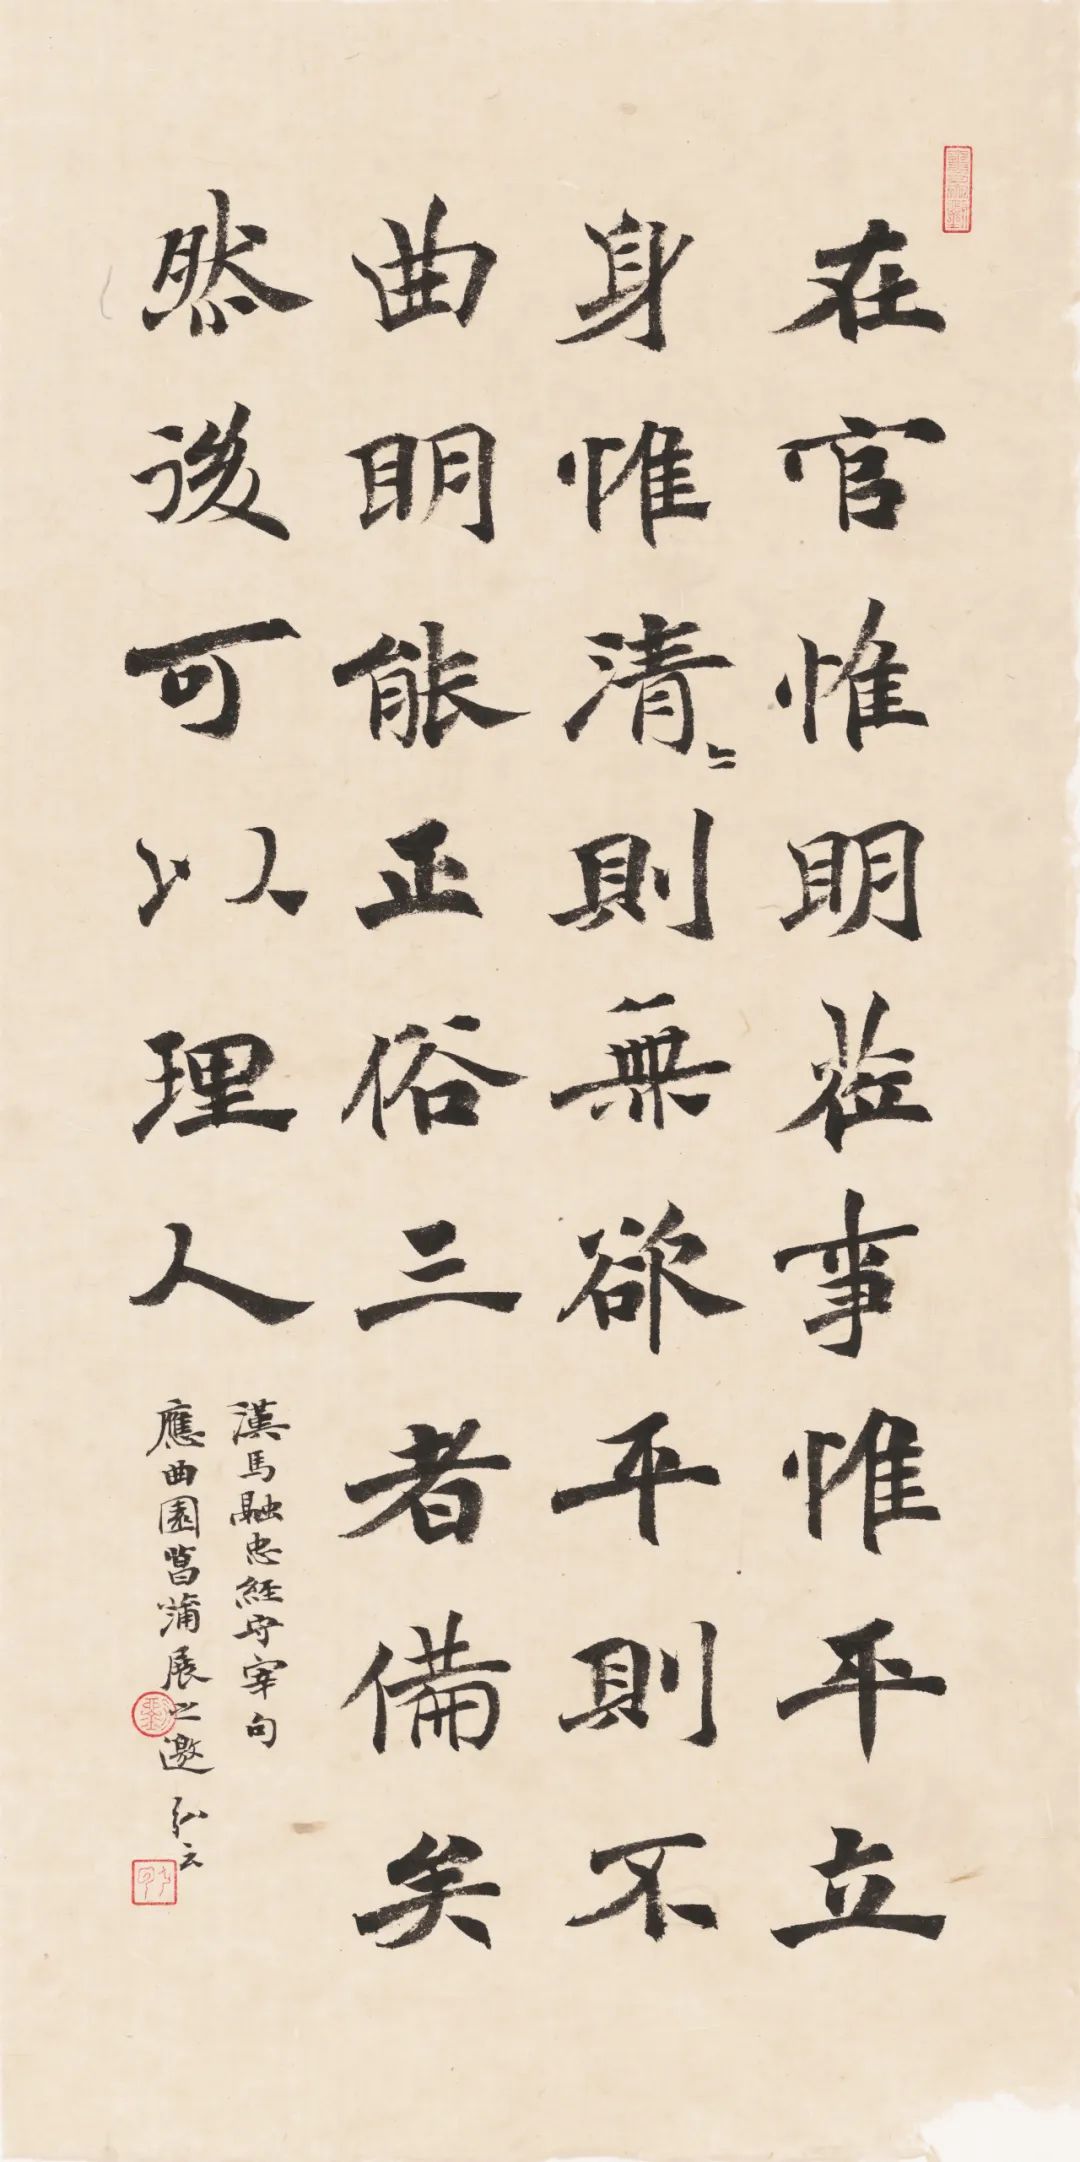 在官惟明莅事惟平立
身惟清〻則無欲平則不
曲明能正俗三者備矣
然後可以理人
漢馬融忠經守宰句
應曲園菖蒲展之邀 弘云